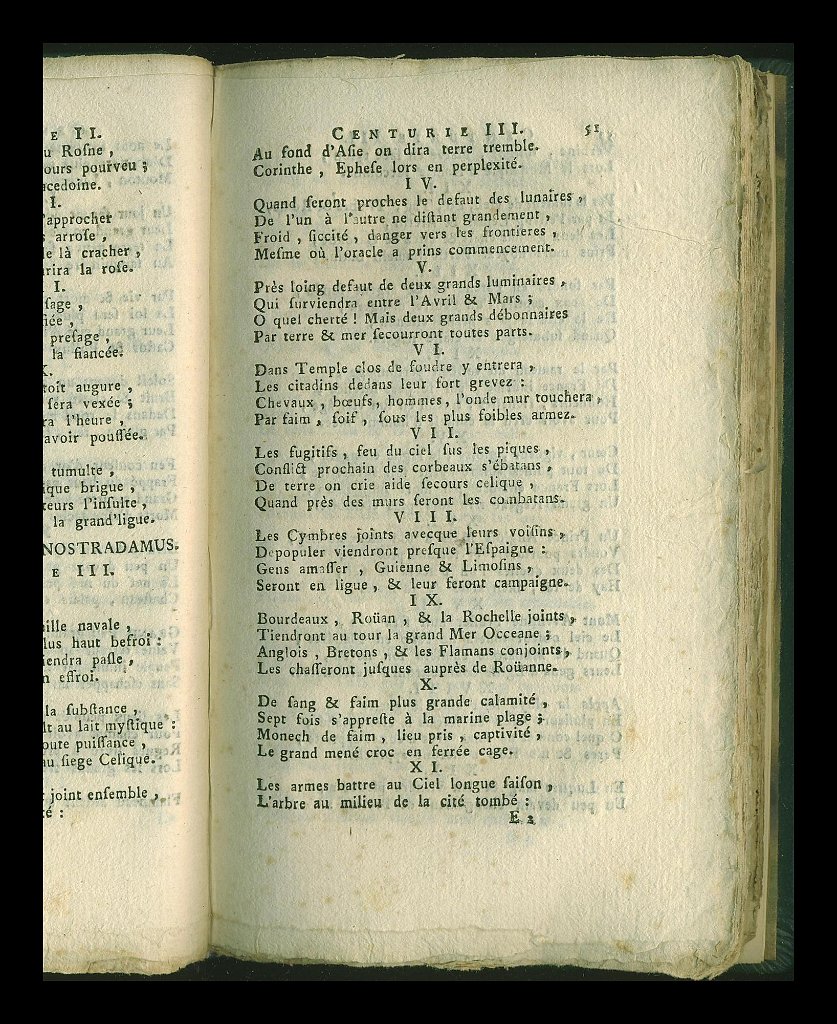 E II.
u Roſne ,
ours pourveu ;
acedoine.
I.
'approcher
s arroſe ,
le là cracher ,
rira la roſe.
I.
ſage ,
fiée ,
preſage ,
la fiancée.
X.
toit augure ,
ſera vexée ;
ra l'heure ,
avoir pouſſée.
tumulte ,
ique brigue ,
teurs l'inſulte ,
la grand'ligue.
NOSTRADAMUS.
E III.
aille navale ,
lus haut befroi :
iendra paſle ,
n effroi.
la ſubſtance ,
lt au lait myſtique :
oute puiſſance ,
au ſiege Celique.
joint enſemble ,
té :
CENTURIE III. 51
Au fond d'Aſie on dira terre tremble.
Corinthe , Epheſe lors en perplexité.
I V.
Quand ſeront proches le defaut des lunaires ,
De l'un à l'autre ne diſtant grandement ,
Froid , ſiccité , danger vers les frontieres ,
Meſme où l'oracle a prins commencement.
V.
Près loing defaut de deux grands luminaires ,
Qui ſurviendra entre l'Avril & Mars ;
O quel cherté ! Mais deux grands débonnaires
Par terre & mer ſecourront toutes parts.
V I.
Dans Temple clos de foudre y entrera ,
Les citadins dedans leur fort grevez :
Chevaux , bœufs , hommes , l'onde mur touchera ,
Par faim , ſoif , ſous les plus foibles armez.
V I I.
Les fugitifs , feu du ciel ſus les piques ,
Conflict prochain des corbeaux s'ébatans ,
De terre on crie aide ſecours celique ,
Quand près des murs ſeront les combatans.
V I I I.
Les Cymbres joints avecque leurs voiſins ,
Depopuler viendront preſque l'Eſpaigne :
Gens amaſſer , Guienne & Limoſins ,
Seront en ligue , & leur feront campaigne.
I X.
Bourdeaux , Roüan , & la Rochelle joints ,
Tiendront au tour la grand Mer Occeane ;
Anglois , Bretons , & les Flamans conjoints ,
Les chaſſeront juſques auprès de Roüanne.
X.
De ſang & faim plus grande calamité ,
Sept fois s'appreſte à la marine plage ;
Monech de faim , lieu pris , captivité ,
Le grand mené croc en ferrée cage.
X I.
Les armes battre au Ciel longue ſaiſon ,
L'arbre au milieu de la cité tombé :
E 2